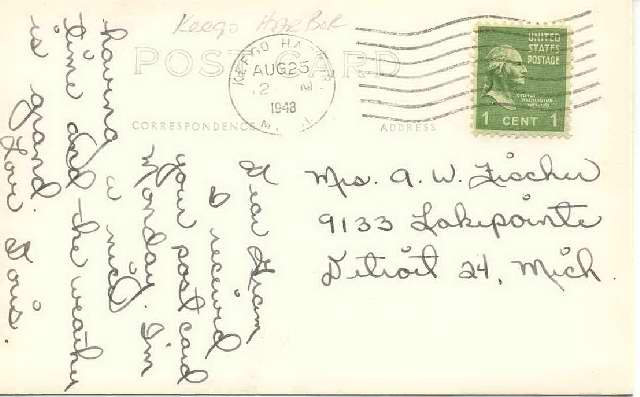 Keego Harbor
POST CARD
KEEGO HARBOR
AUG 25
2
1948
UNITED
STATES
POSTAGE
1 CENT 1
CORRESPONDENCE
ADDRESS
Dear Gram,
I received
your post card
Monday. I'm
having a nice
time and the weather
is grand.
Love Doris.
Mrs. A. W. Fischer
9133 Lakepointe
Detroit 24, Mich.